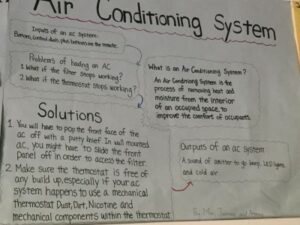 Air Conditioning System
Inputs of an ac system:
Buttons, control dials, plus buttons on the remote.
Problems of having an AC
1 What if the filter stops working?
2 What if the thermostat stops working?
What is an Air Conditioning System?
An Air Conditioning System is the
process of removing heat and
moisture from the interior
of an occupied space, to
improve the comfort of occupants.
Solutions
1. You will have to pop the front face of the
ac off with a putty knief. In wall mounted
ac, you might have to slide the front
panel off in order to access the filter.
2. Make sure the thermostat is free of
any build up, especially if your ac
system happens to use a mechanical
thermostat. Dust, Dirt, Nicotine and
mechanical components within the thermostat
Outputs of an ac system
A sound of air going being, LED lights,
and cold air
By: